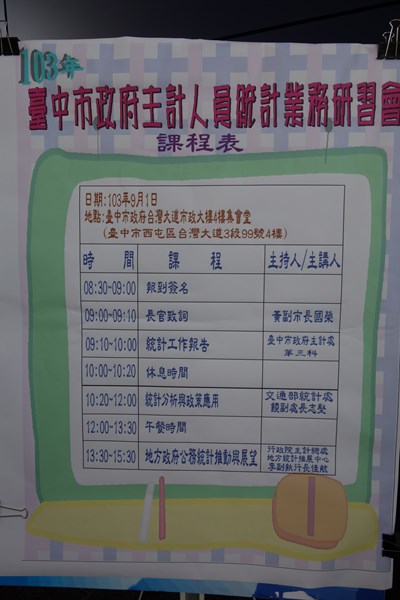 103年
臺中市政府主計人員統計業務研習會
課程表
日期:103年9月1日
地點:臺中市政府台灣大道市政大樓4樓集會堂
(臺中市西屯區台灣大道3段99號4樓)
時 間 課 程 主持人/主講人
08:30~09:00 報到簽名
09:00~09:10 長官致詞 黃副市長國榮
09:10~10:00 統計工作報告 臺中市政府主計處
第三科
10:00~10:20 休息時間
10:20~12:00 統計分析與政策應用 交通部統計處
饒副處長志堅
12:00~13:30 午餐時間
13:30~15:30 地方政府公務統計推動與展望 行政院主計總處
地方統計推展中心
李副執行長佳航